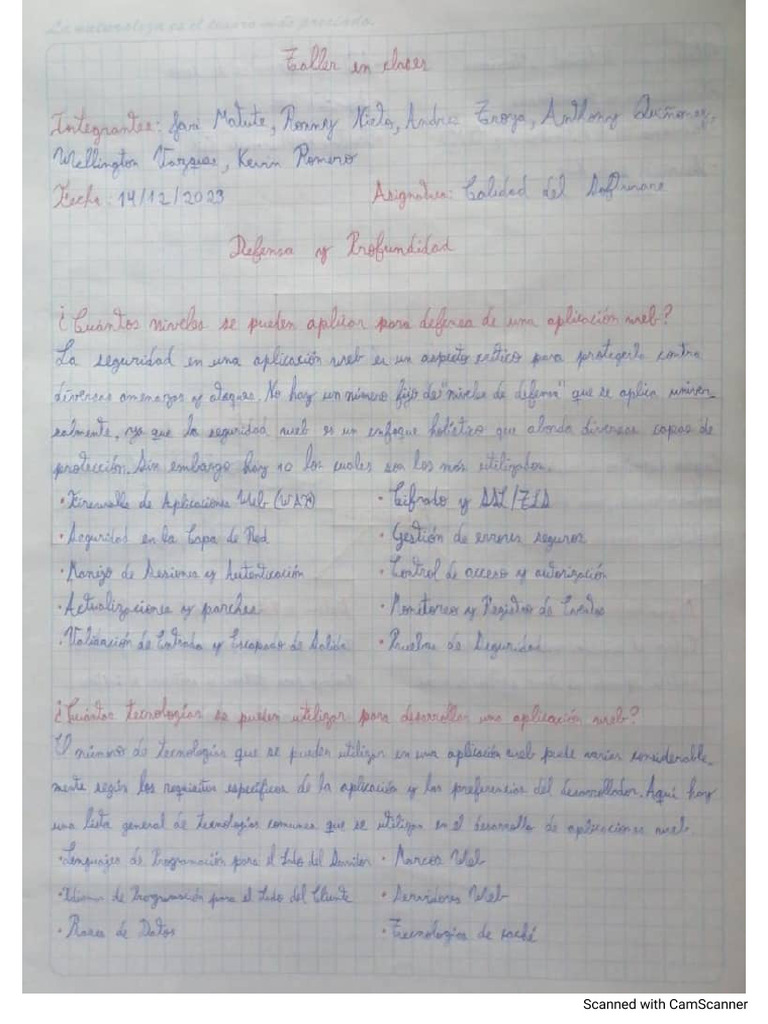 La naturaleza es el tesoro más preciado.
Taller en clases
Integrantes: Matute, Ronny Nieto, Andres Anthony Quiñonez,
Wellington Vargas, Kevin Romero
Fecha: 14/12/2023 Asignatura: Calidad del Software
Defensa y Profundidad
¿Cuántos niveles se pueden aplicar para defensa de una aplicación web?
La seguridad en una aplicación web es un aspecto crítico para protegerla contra
diversas amenazas y ataques. No hay un número fijo de "niveles de defensa" que se aplica univer-
salmente, ya que la seguridad web es un enfoque holístico que aborda diversas capas de
protección. Sin embargo hay 10 los cuales son los más utilizados.
• Firewalls de Aplicaciones Web (WAF) • Cifrado y SSL/TLS
• Seguridad en la Capa de Red • Gestión de errores seguros
• Manejo de Sesiones y Autenticación • Control de acceso y autorización
• Actualizaciones y parches • Monitoreo y Registro de Eventos
• Validación de Entrada y Escapado de Salida • Pruebas de Seguridad
¿Cuántas tecnologías se pueden utilizar para desarrollar una aplicación web?
El número de tecnologías que se pueden utilizar en una aplicación web puede variar considerable-
mente según los requisitos específicos de la aplicación y las preferencias del desarrollador. Aquí hay
una lista general de tecnologías comunes que se utilizan en el desarrollo de aplicaciones web.
• Lenguajes de Programación para el Lado del Servidor • Marcos Web
• Idiomas de Programación para el Lado del Cliente • Servidores Web
• Bases de Datos • Tecnologías de caché
Scanned with CamScanner